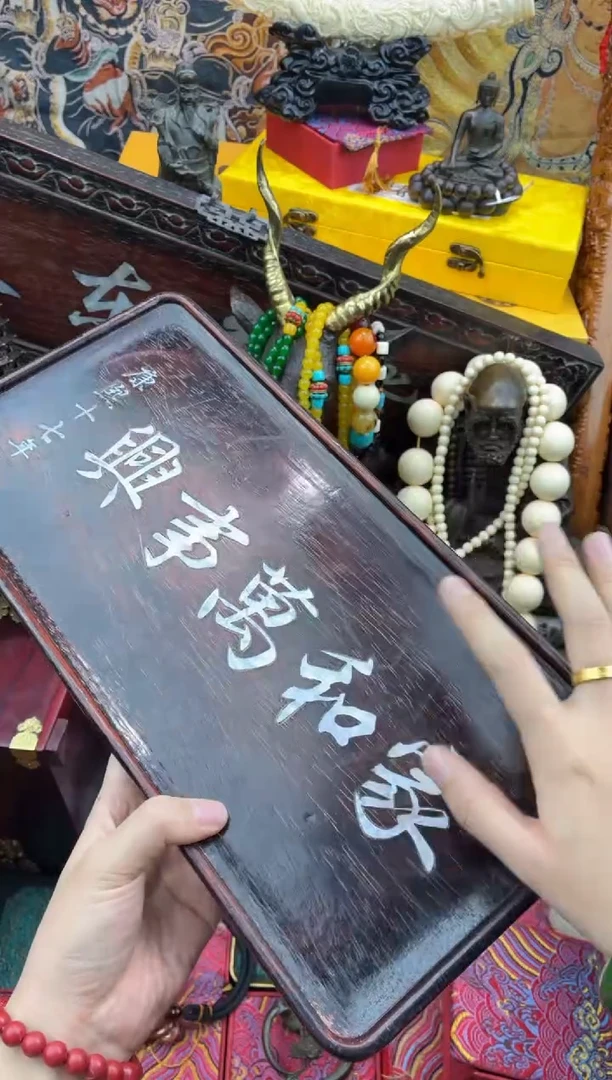 家和萬事興
康熙十七年